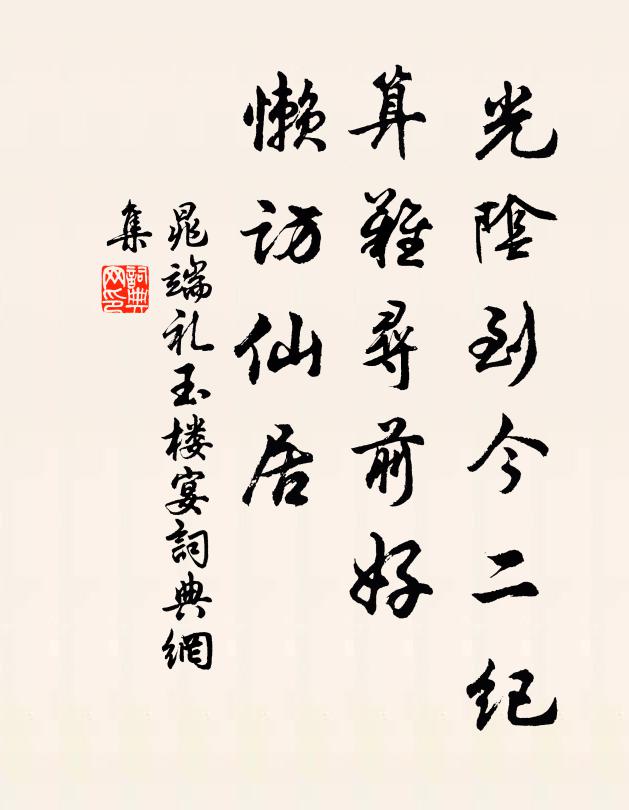 光陰到今二紀
算難尋前好
懶訪仙居
晁端礼玉楼宴詞典網
集
詞典
网印